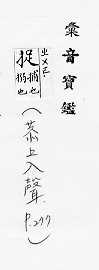 彙音寶鑑
ㄓㄨㄛ
捉 捕也 搦也
(恭上入聲 P.277)